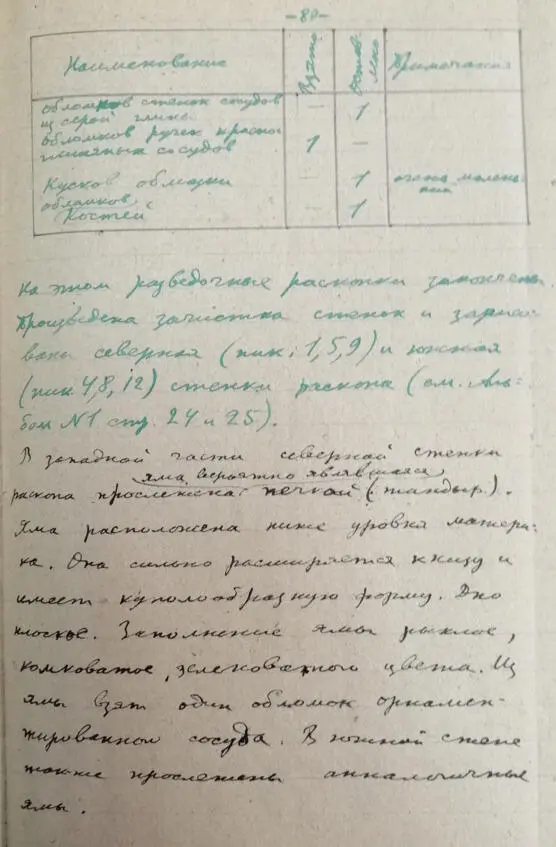 -80-
Наименование Взято Оставлено Примечание
обломков стенок сосудов - 1
из серой глины
обломков ручек красно 1 -
глиняных сосудов
Кусков обмазки - 1 очень малень-
кий
обломков - 1
Костей
На этом разведочные раскопки закончены.
Произведена зачистка стенок и зарисо-
ваны северная (пик. 1, 5, 9) и южная
(пик 4, 8, 12) стенки раскопа (см. Аль-
бом №1 стр. 24 и 25).
В западной части северной стенки
яма, вероятно являвшаяся
раскопа прослежена печкой (тандыр).
Яма расположена ниже уровня матери-
ка. Она сильно расширяется книзу и
имеет куполообразную форму. Дно
плоское. Заполнение ямы рыхлое,
комковатое, зеленоватого цвета. Из
ямы взят один обломок орнамен-
тированного сосуда. В южной стене
также прослежены анналогичные
ямы.